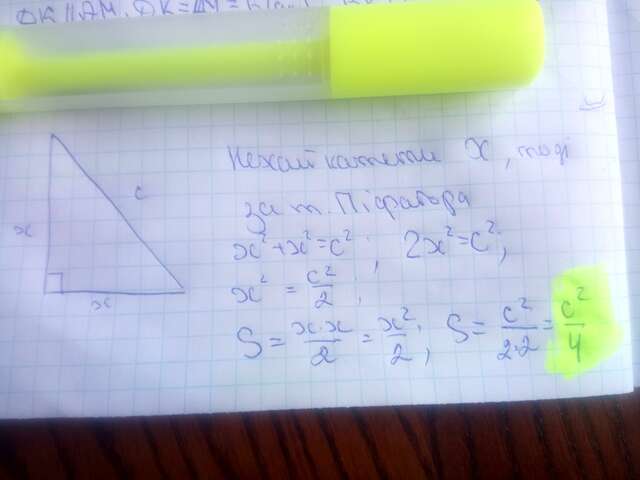 ДК || АМ, ДК =
Нехай катети x, тоді
за т. Піфагора
c
x
x
x² + x² = c²; 2x² = c²;
x² = c²/2;
S = x·x/2 = x²/2; S = c²/2·2 = c²/4